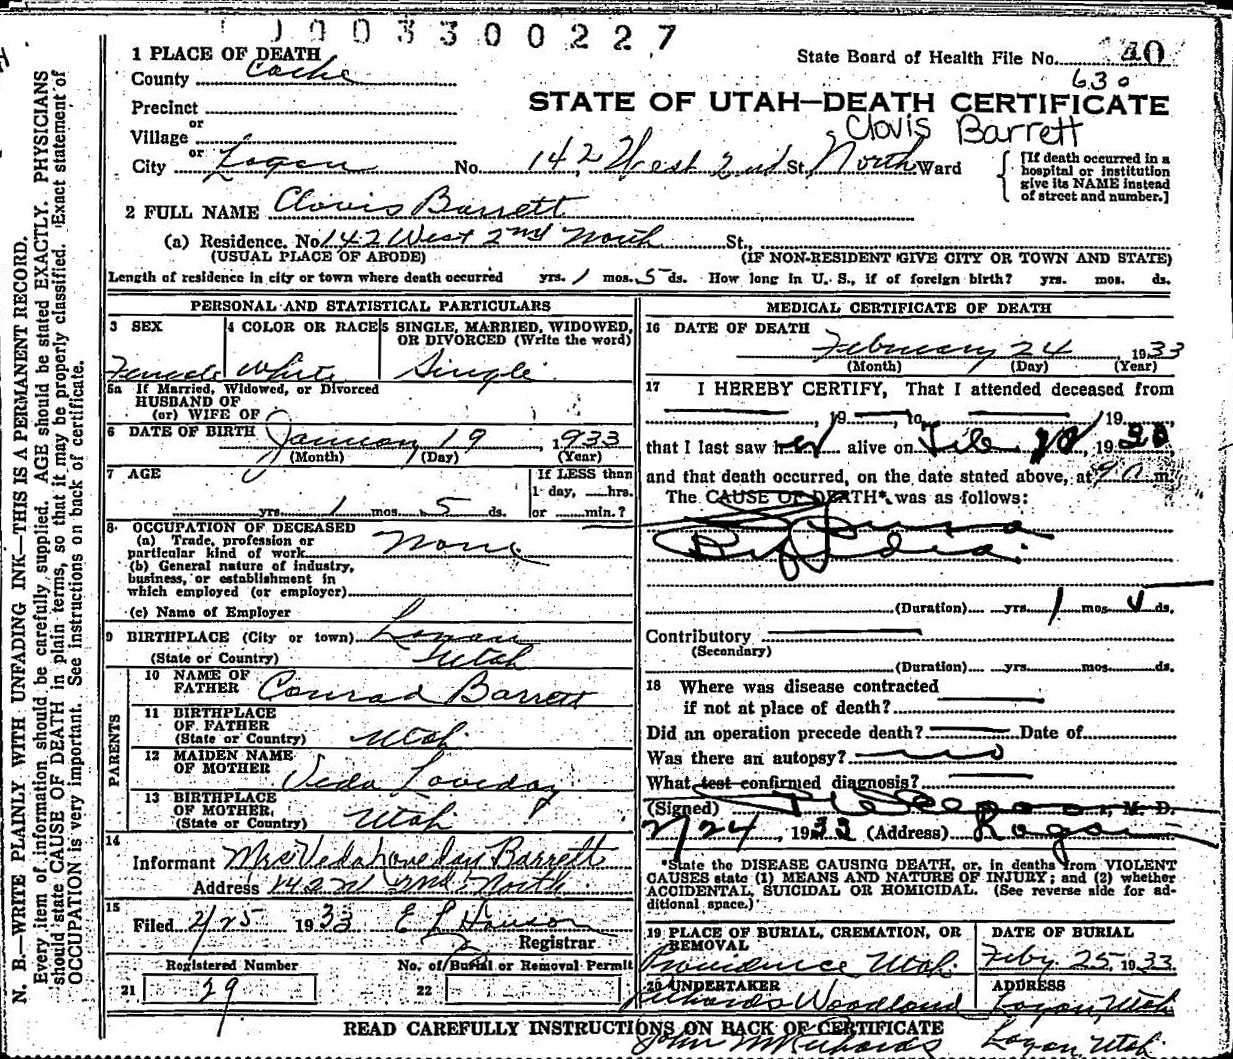 0 0 3 3 0 0 2 2 7
1 PLACE OF DEATH
County Cache
Precinct
or
Village
or
City Logan No. 142, West 2nd St, North Ward
State Board of Health File No. 40
630
STATE OF UTAH—DEATH CERTIFICATE
Clovis Barrett
[If death occurred in a
hospital or institution
give its NAME instead
of street and number.]
2 FULL NAME Clovis Barrett
(a) Residence. No. 142 West 2nd North St.,
(USUAL PLACE OF ABODE) (IF NON-RESIDENT GIVE CITY OR TOWN AND STATE)
Length of residence in city or town where death occurred yrs. 1 mos. 5 ds. How long in U. S., if of foreign birth? yrs. mos. ds.
PERSONAL AND STATISTICAL PARTICULARS
3 SEX 4 COLOR OR RACE 5 SINGLE, MARRIED, WIDOWED,
OR DIVORCED (Write the word)
Female White Single
5a If Married, Widowed, or Divorced
HUSBAND OF
(or) WIFE OF
6 DATE OF BIRTH January 19, 1933
(Month) (Day) (Year)
7 AGE If LESS than
1 day, hrs.
yrs. 1 mos. 5 ds. or min.?
8 OCCUPATION OF DECEASED
(a) Trade, profession or
particular kind of work None
(b) General nature of industry,
business, or establishment in
which employed (or employer)
(c) Name of Employer
9 BIRTHPLACE (City or town) Logan
(State or Country) Utah
PARENTS
10 NAME OF
FATHER Conrad Barrett
11 BIRTHPLACE
OF FATHER
(State or Country) Utah
12 MAIDEN NAME
OF MOTHER Veda Loveday
13 BIRTHPLACE
OF MOTHER,
(State or Country) Utah
14
Informant Mrs Veda Loveday Barrett
Address 142 W 2nd North
15
Filed 2/25 1933 E L Hanson
Registrar
Registered Number No. of Burial or Removal Permit
21 29 22
MEDICAL CERTIFICATE OF DEATH
16 DATE OF DEATH
February 24, 1933
(Month) (Day) (Year)
17 I HEREBY CERTIFY, That I attended deceased from
, 19 to , 19
that I last saw her alive on Feb , 19
and that death occurred, on the date stated above, at 9 a m.
The CAUSE OF DEATH* was as follows:
(Duration) yrs. 1 mos. ds.
Contributory
(Secondary)
(Duration) yrs. mos. ds.
18 Where was disease contracted
if not at place of death?
Did an operation precede death? Date of
Was there an autopsy? no
What test confirmed diagnosis?
(Signed) , M. D.
2/24, 1933 (Address) Logan
*State the DISEASE CAUSING DEATH, or, in deaths from VIOLENT
CAUSES state (1) MEANS AND NATURE OF INJURY; and (2) whether
ACCIDENTAL, SUICIDAL OR HOMICIDAL. (See reverse side for ad-
ditional space.)
19 PLACE OF BURIAL, CREMATION, OR
REMOVAL
Providence Utah
DATE OF BURIAL
Feby 25, 1933
20 UNDERTAKER
Richards Woodland
John M Richards
ADDRESS
Logan, Utah
Logan, Utah
READ CAREFULLY INSTRUCTIONS ON BACK OF CERTIFICATE
N. B.—WRITE PLAINLY WITH UNFADING INK—THIS IS A PERMANENT RECORD.
Every item of information should be carefully supplied. AGE should be stated EXACTLY. PHYSICIANS
should state CAUSE OF DEATH in plain terms, so that it may be properly classified. Exact statement of
OCCUPATION is very important. See instructions on back of certificate.